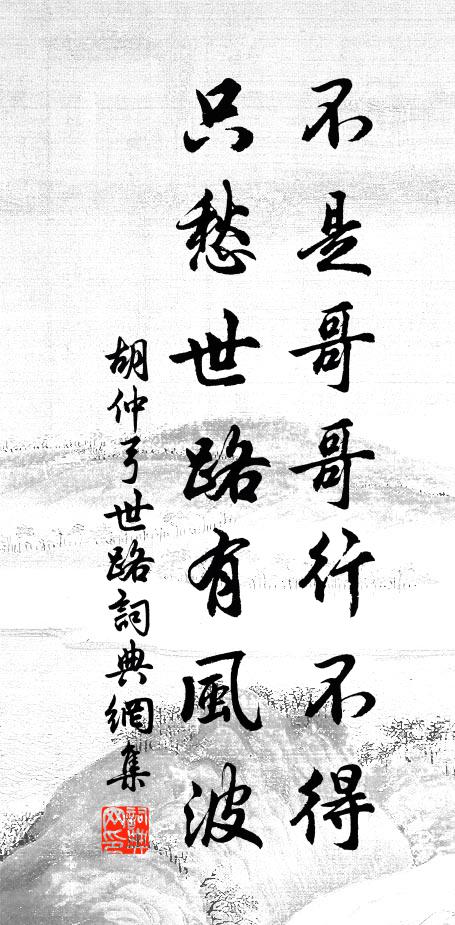 不是哥哥行不得
只愁世路有風波
胡仲弓世路詞典網集